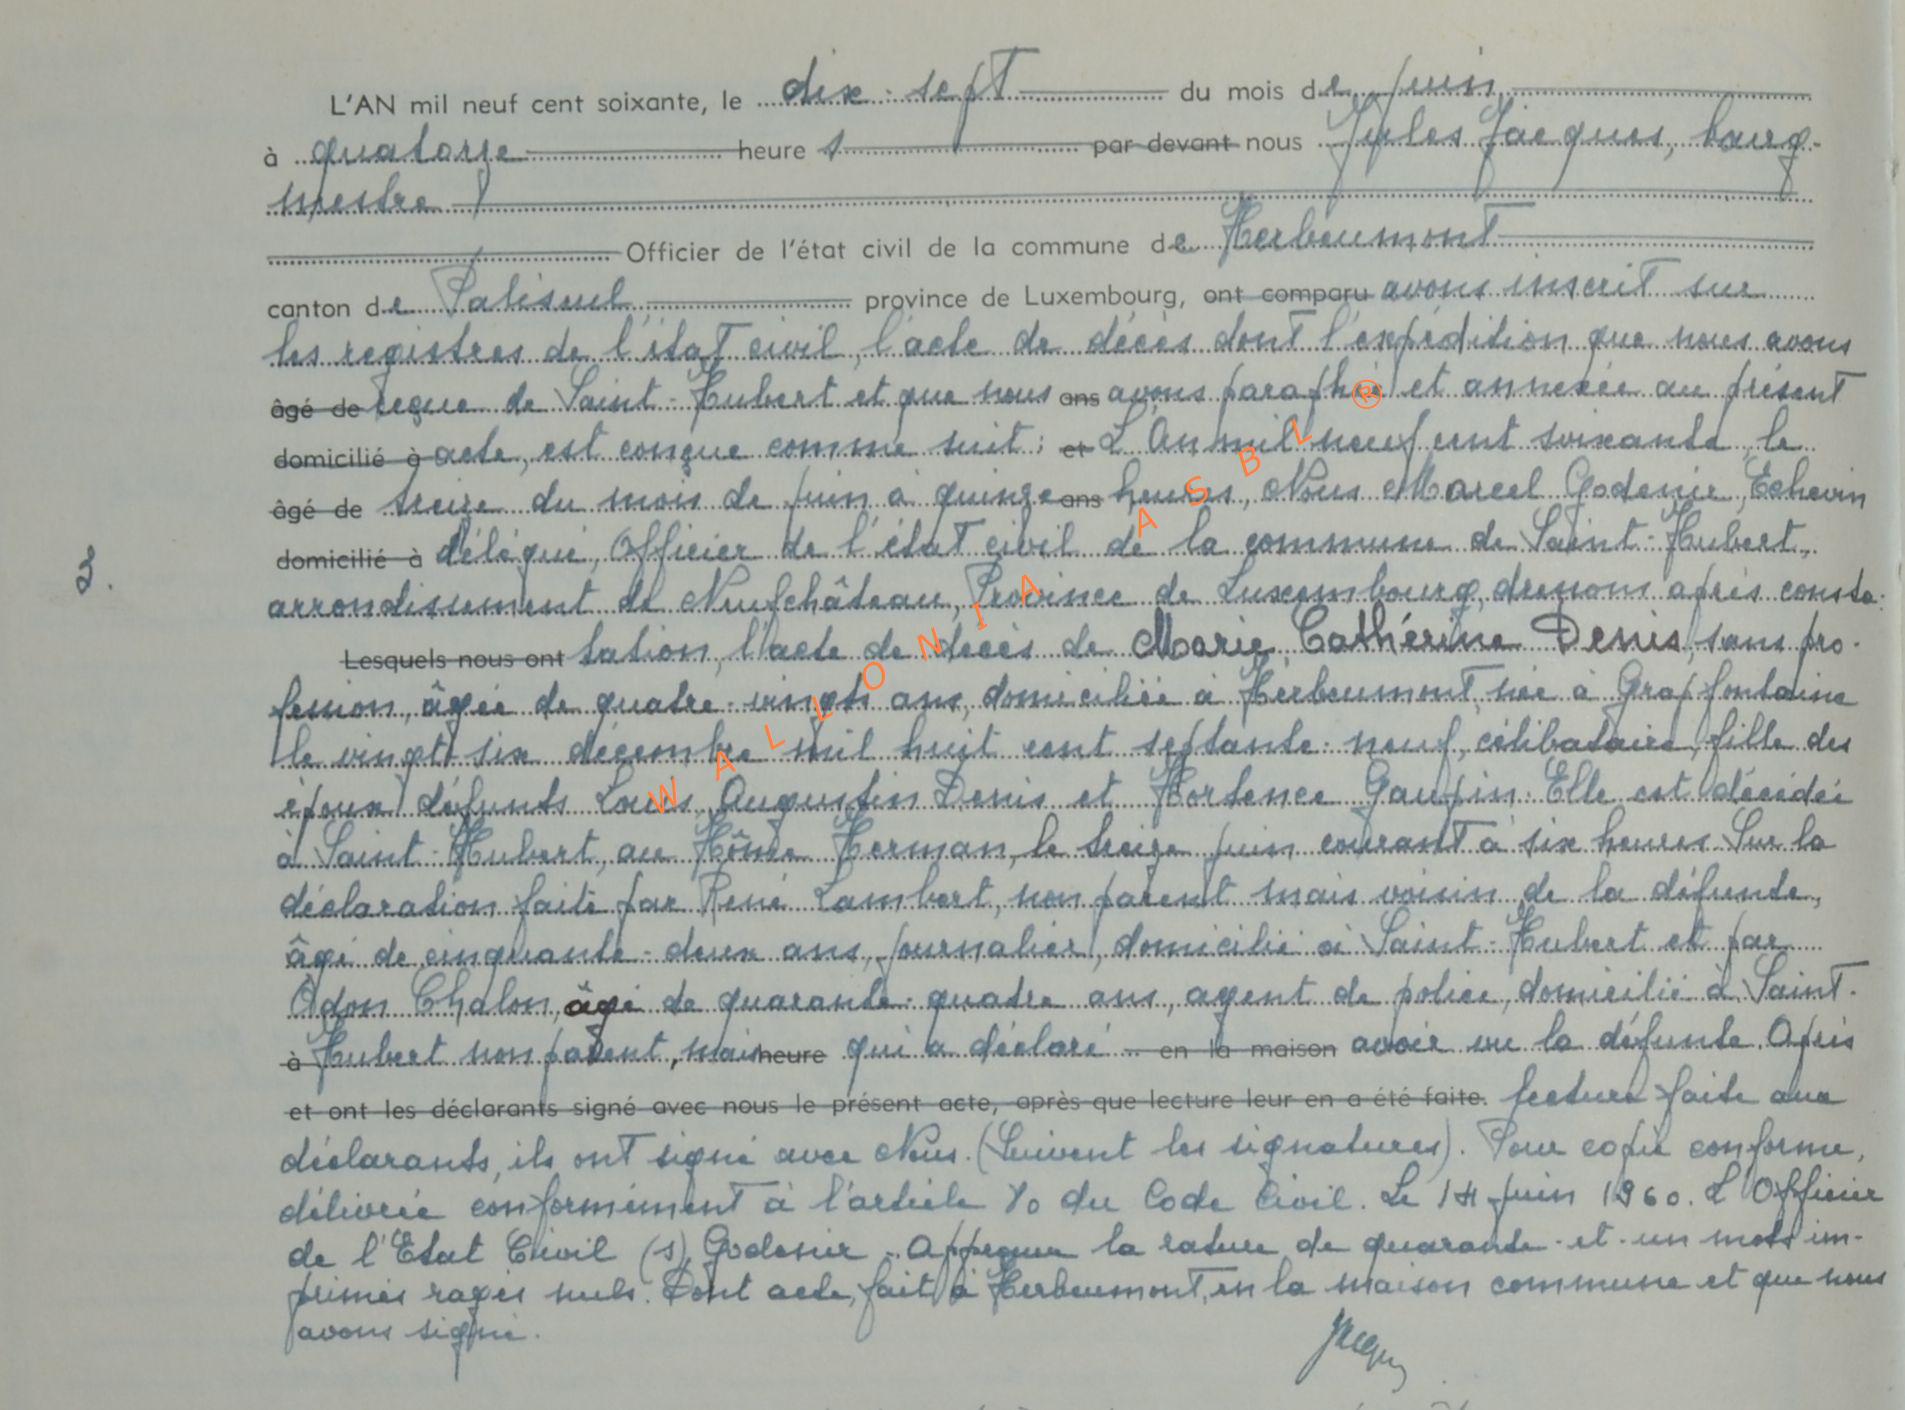 L'AN mil neuf cent soixante, le dix-sept du mois de juin
à quatorze heures par devant nous Jules Jacques, bourg-
mestre
Officier de l'état civil de la commune de Herbeumont
canton de Paliseul province de Luxembourg, ont comparu avons inscrit sur
les registres de l'état civil, l'acte de décès dont l'expédition que nous avons
âgé de reçue de Saint-Hubert et que nous ans avons paraphé et annexée au présent
domicilié à acte, est conçue comme suit : et L'An mil neuf cent soixante, le
âgé de treize du mois de juin à quinze ans heures, Nous Marcel Godenir, Echevin
domicilié à délégué, Officier de l'état civil de la commune de Saint-Hubert,
3.
arrondissement de Neufchâteau, Province de Luxembourg, dressons après consta-
Lesquels nous ont tation, l'acte de décès de Marie, Cathérine Denis, sans pro-
fession, âgée de quatre-vingts ans, domiciliée à Herbeumont, née à Grapfontaine
le vingt six décembre mil huit cent septante-neuf, célibataire, fille des
époux défunts Louis Augustin Denis et Hortence Gaupin. Elle est décédée
à Saint-Hubert, au Hôme Herman, le treize juin courant à six heures. Sur la
déclaration faite par René Lambert, non parent mais voisin de la défunte,
âgé de cinquante-deux ans, journalier, domicilié à Saint-Hubert et par
Odon Chalon, âgé de quarante-quatre ans, agent de police, domicilié à Saint-
à Hubert non parent, mais heure qui a déclaré en la maison avoir vu la défunte. Après
et ont les déclarants signé avec nous le présent acte, après que lecture leur en a été faite. lecture faite aux
déclarants, ils ont signé avec Nous. (Suivent les signatures). Pour copie conforme,
délivrée conformément à l'article 70 du Code Civil. Le 14 juin 1960. L'Officier
de l'Etat Civil (s) Godenir - Approuvé la rature de quarante-et-un mots im-
primés rayés nuls. Dont acte, fait à Herbeumont, en la maison commune et que nous
avons signé.
Jacques
WALLONIA ASBL ®